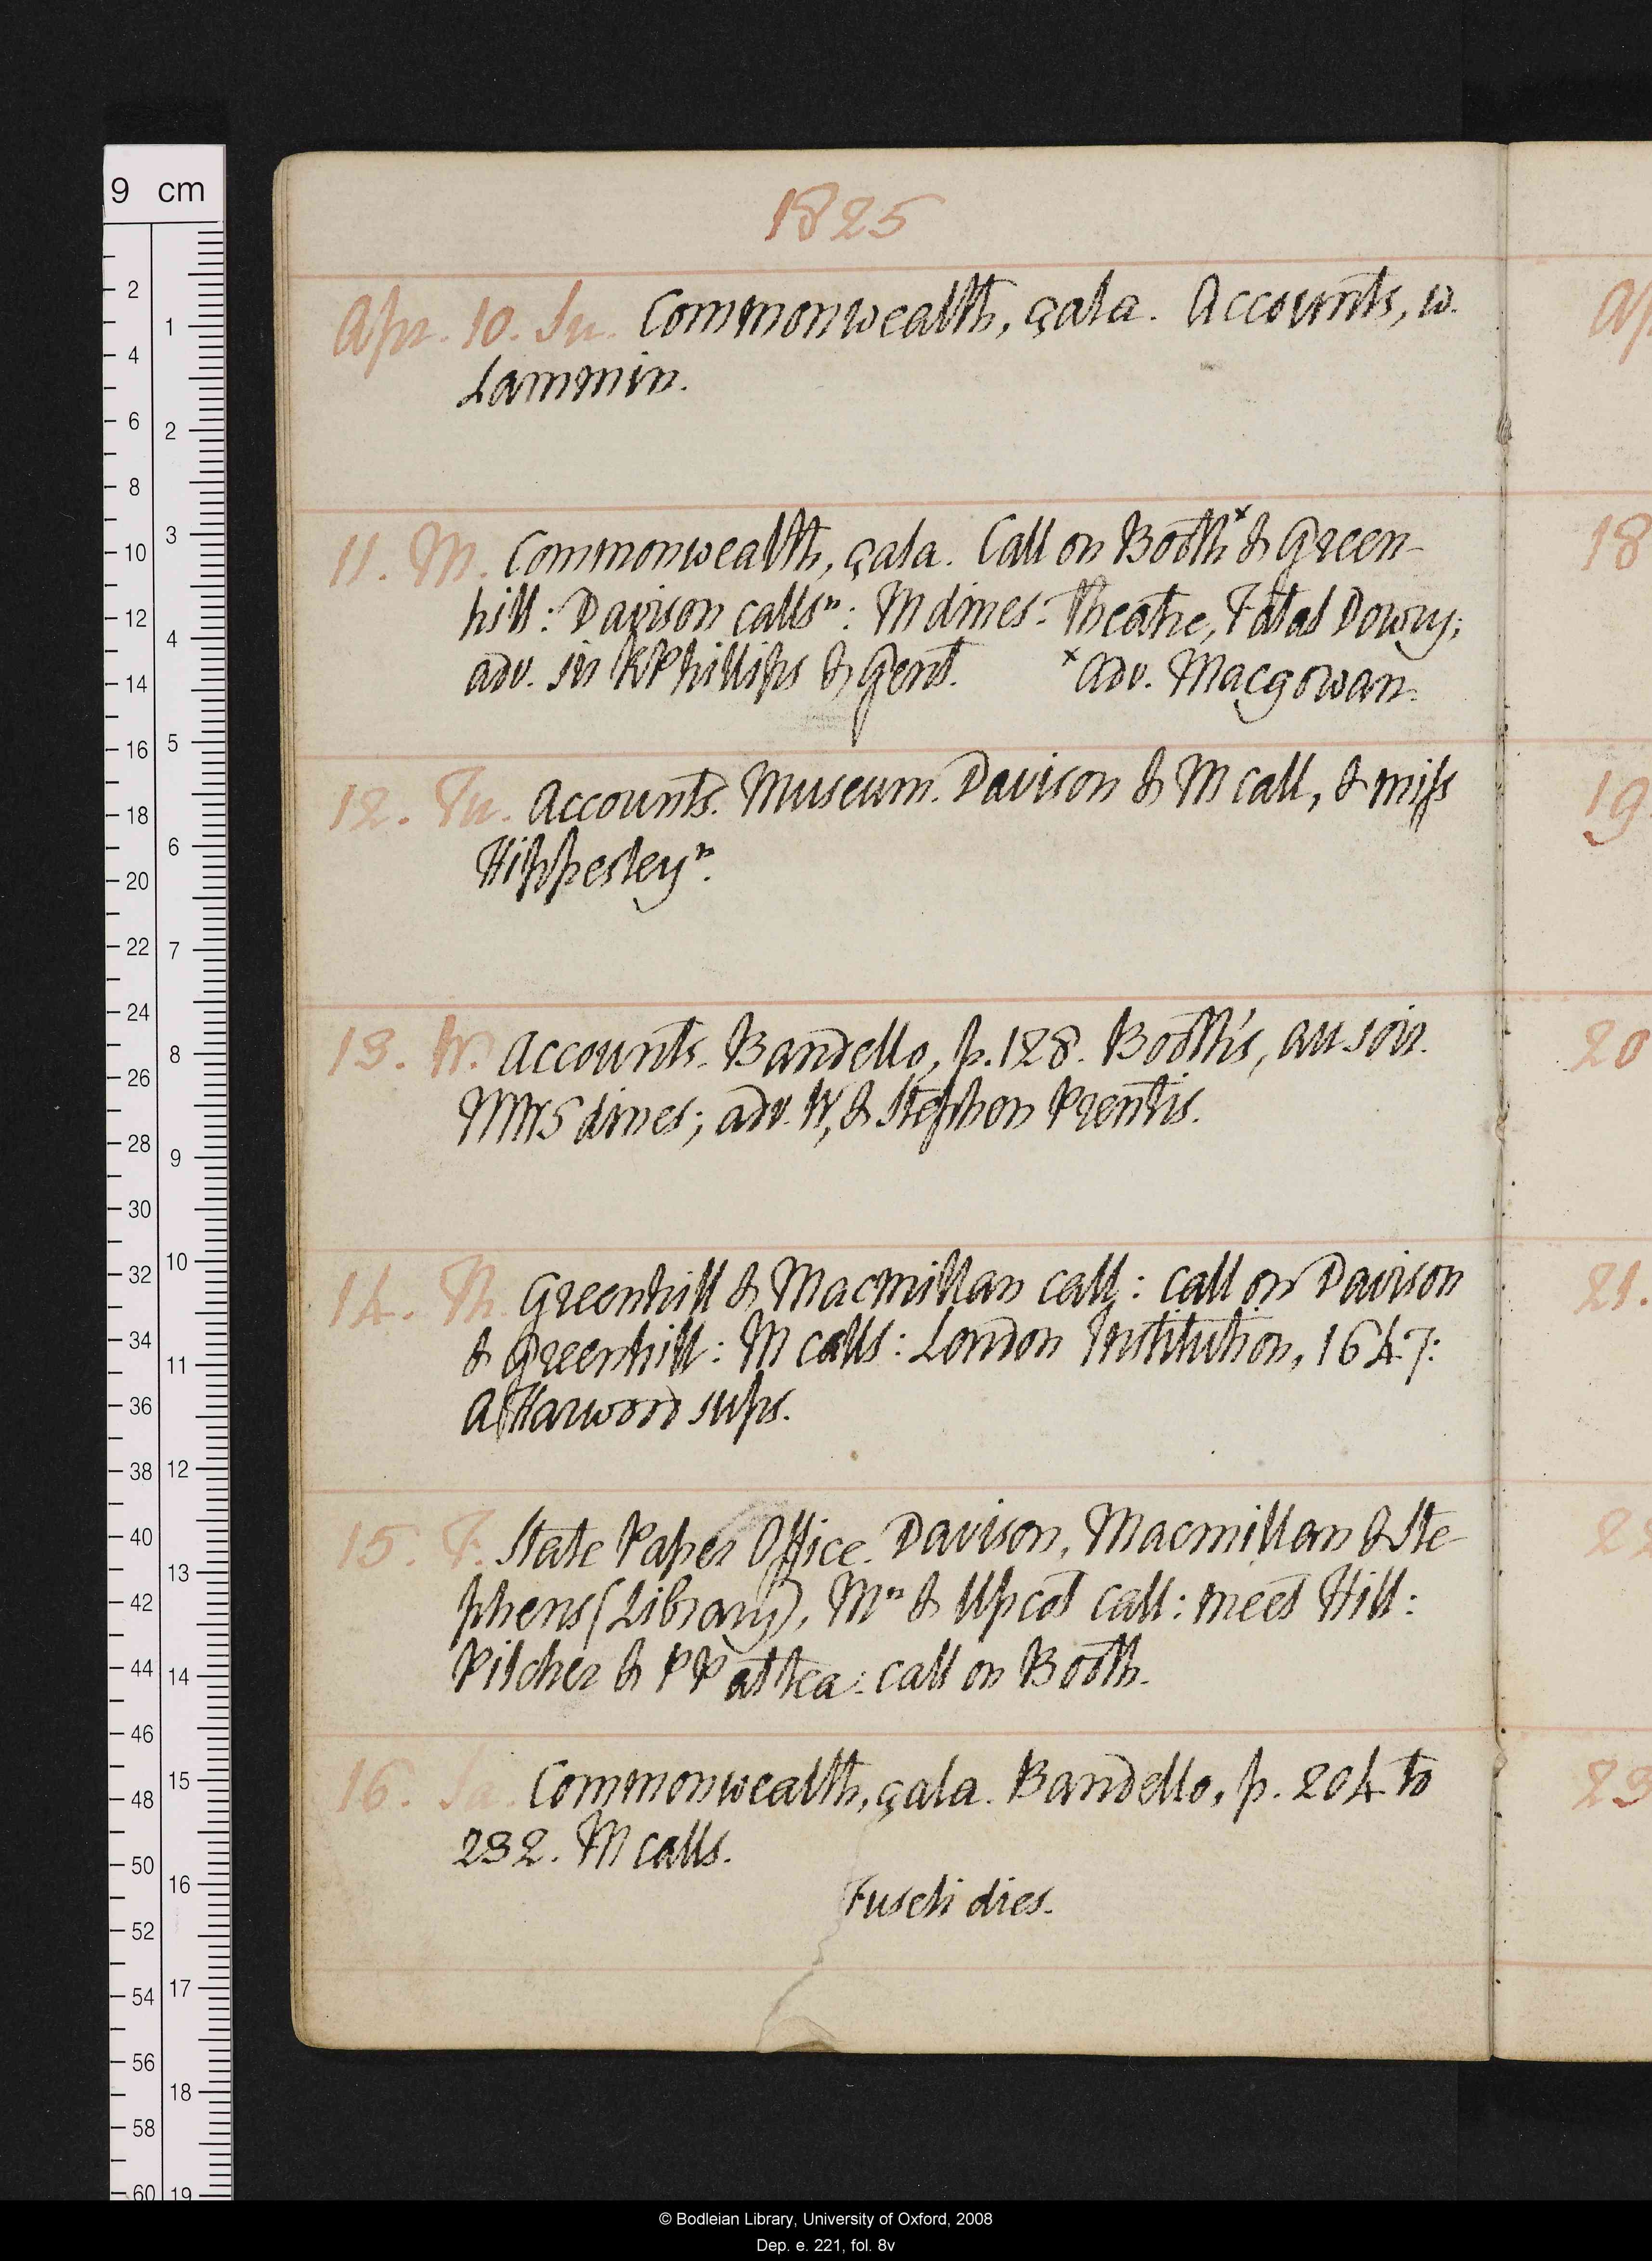 1825
Apr. 10. Su. Commonwealth, çala. Accounts, w.
Lammin.
11. M. Commonwealth, çala. Call on Booth˟ & Green-
hill: Davison callsⁿ: M dines: Theatre, Fatal Dowry;
adv. sir R Phillips & Gent. ˟adv. Macgowan.
12. Tu. Accounts. Museum. Davison & M call, & miss
Hippesleyⁿ.
13. W. Accounts. Bandello, p. 128. Booth's, au soir.
MWS dines; adv. W, & Stephen Prentis.
14. Th. Greenhill & Macmillan call: call on Davison
& Greenhill: M calls: London Institution, 1647:
A Harwood sups.
15. F. State Paper Office. Davison, Macmillan & Ste-
phens (Library), Mⁿ & Upcot call: meet Hill:
Pilcher & PP at tea: call on Booth.
16. Sa. Commonwealth, çala. Bandello, p. 204 to
232. M calls.
Fuseli dies.
Ap
18
19
20
21.
22
23
9 cm
2
4
6
8
10
12
14
16
18
20
22
24
26
28
30
32
34
36
38
40
42
44
46
48
50
52
54
56
58
60
1
2
3
4
5
6
7
8
9
10
11
12
13
14
15
16
17
18
19
© Bodleian Library, University of Oxford, 2008
Dep. e. 221, fol. 8v